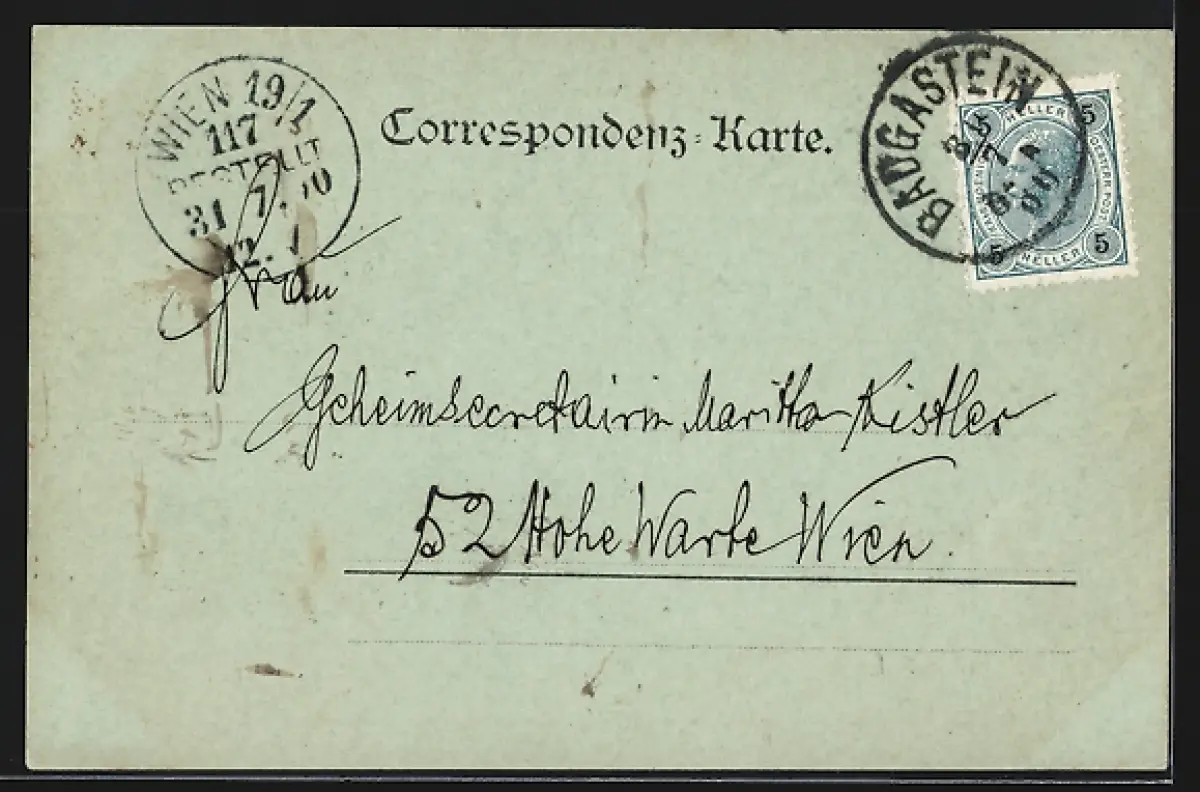 WIEN 19/1
117
BESTELLT
31 7. 00
12.
Correspondenz-Karte.
BADGASTEIN
5 HELLER 5
5 HELLER 5
Frau
Geheimsecretairin Maritta Kistler
52 Hohe Warte Wien.